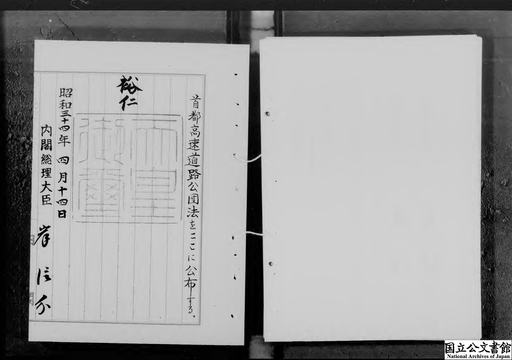 首都高速道路公団法をここに公布する。
裕仁
天皇御璽
昭和三十四年四月十四日
内閣総理大臣 岸信介
国立公文書館
National Archives of Japan